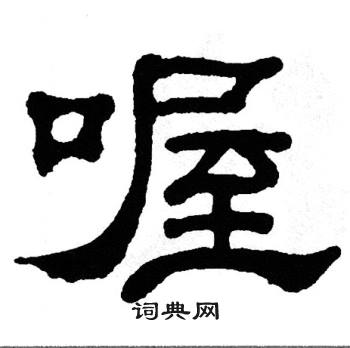 喔
词典网